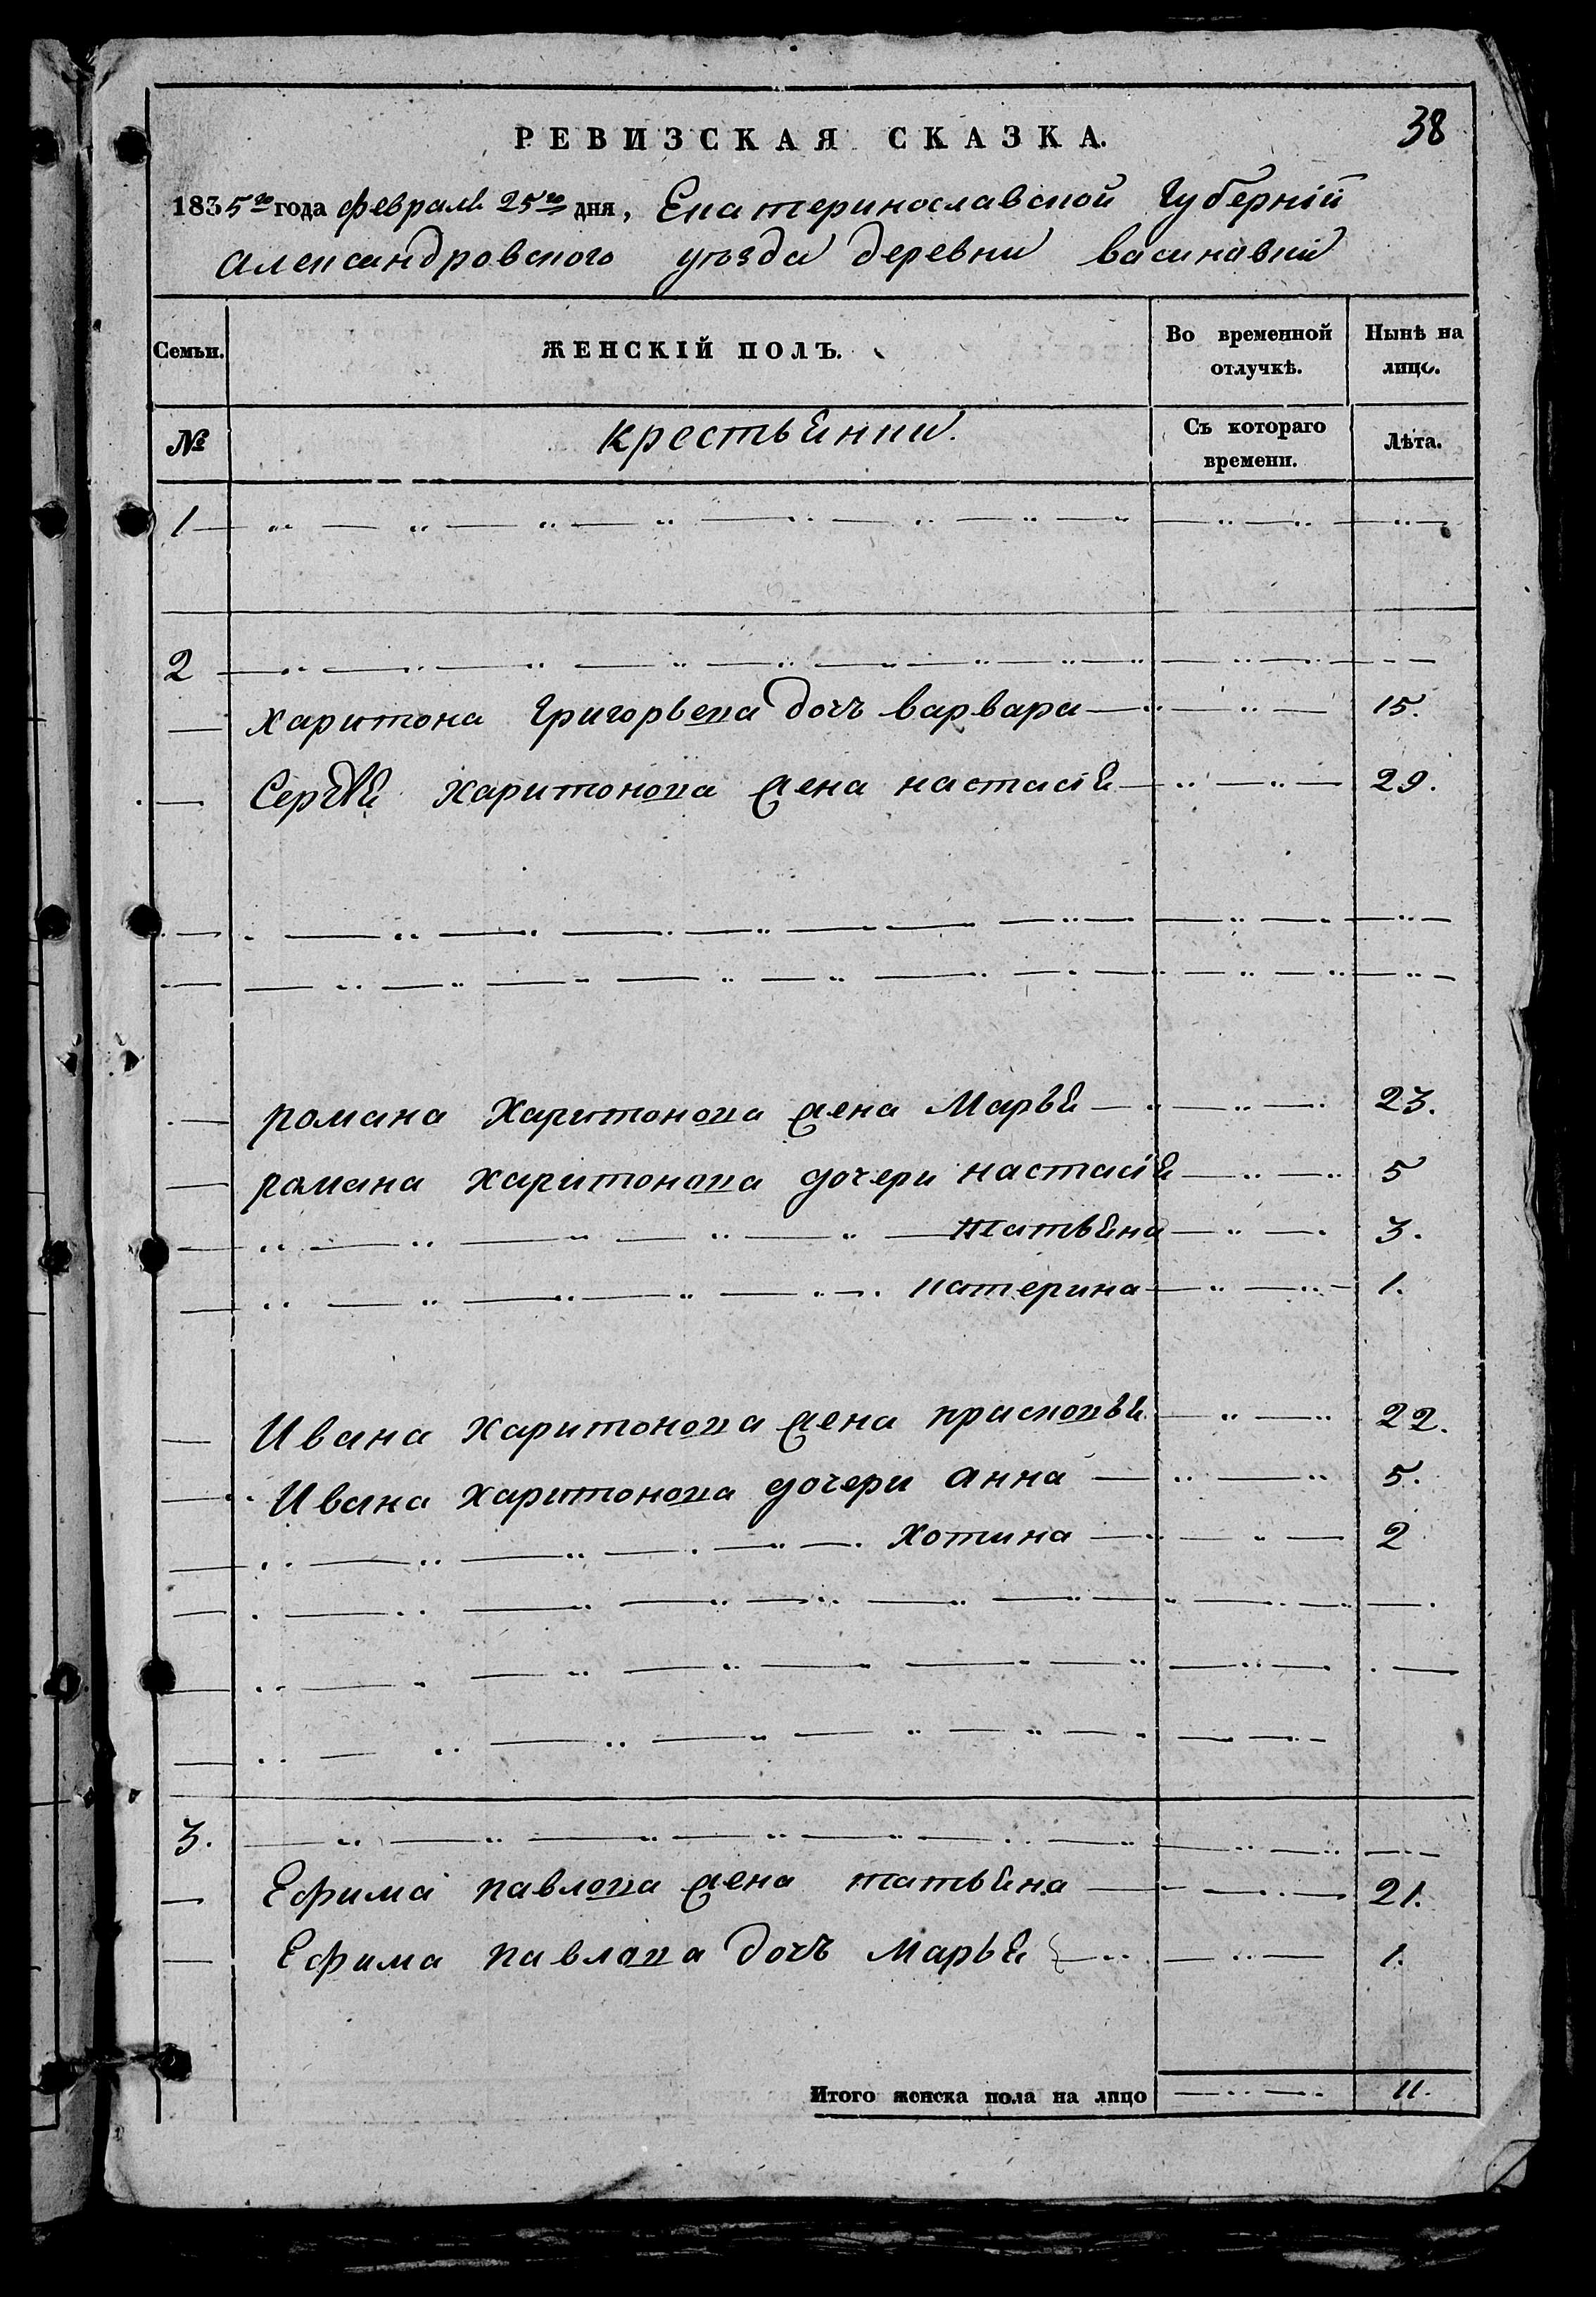 38
РЕВИЗСКАЯ СКАЗКА.
1835го года февраля 25го дня, Екатеринославской Губернiи
александровского уезда деревни васинавки
Семьи. ЖЕНСКІЙ ПОЛЪ. Во временной отлучкѣ. Нынѣ на лицо.
№ крестьянки. Съ котораго времени. Лѣта.
1
2
харитона Григорьева дочь варвара 15.
Сергея харитонова жена настасiя 29.
романа харитонова жена Марья 23.
романа харитонова дочери настасiя 5
татьяна 3.
катерина 1.
Ивана харитонова жена прасковья 22.
Ивана харитонова дочери анна 5.
хотина 2
3.
Ефима павлова жена татьяна 21.
Ефима павлова дочь Марья 1.
Итого женска пола на лицо 11.